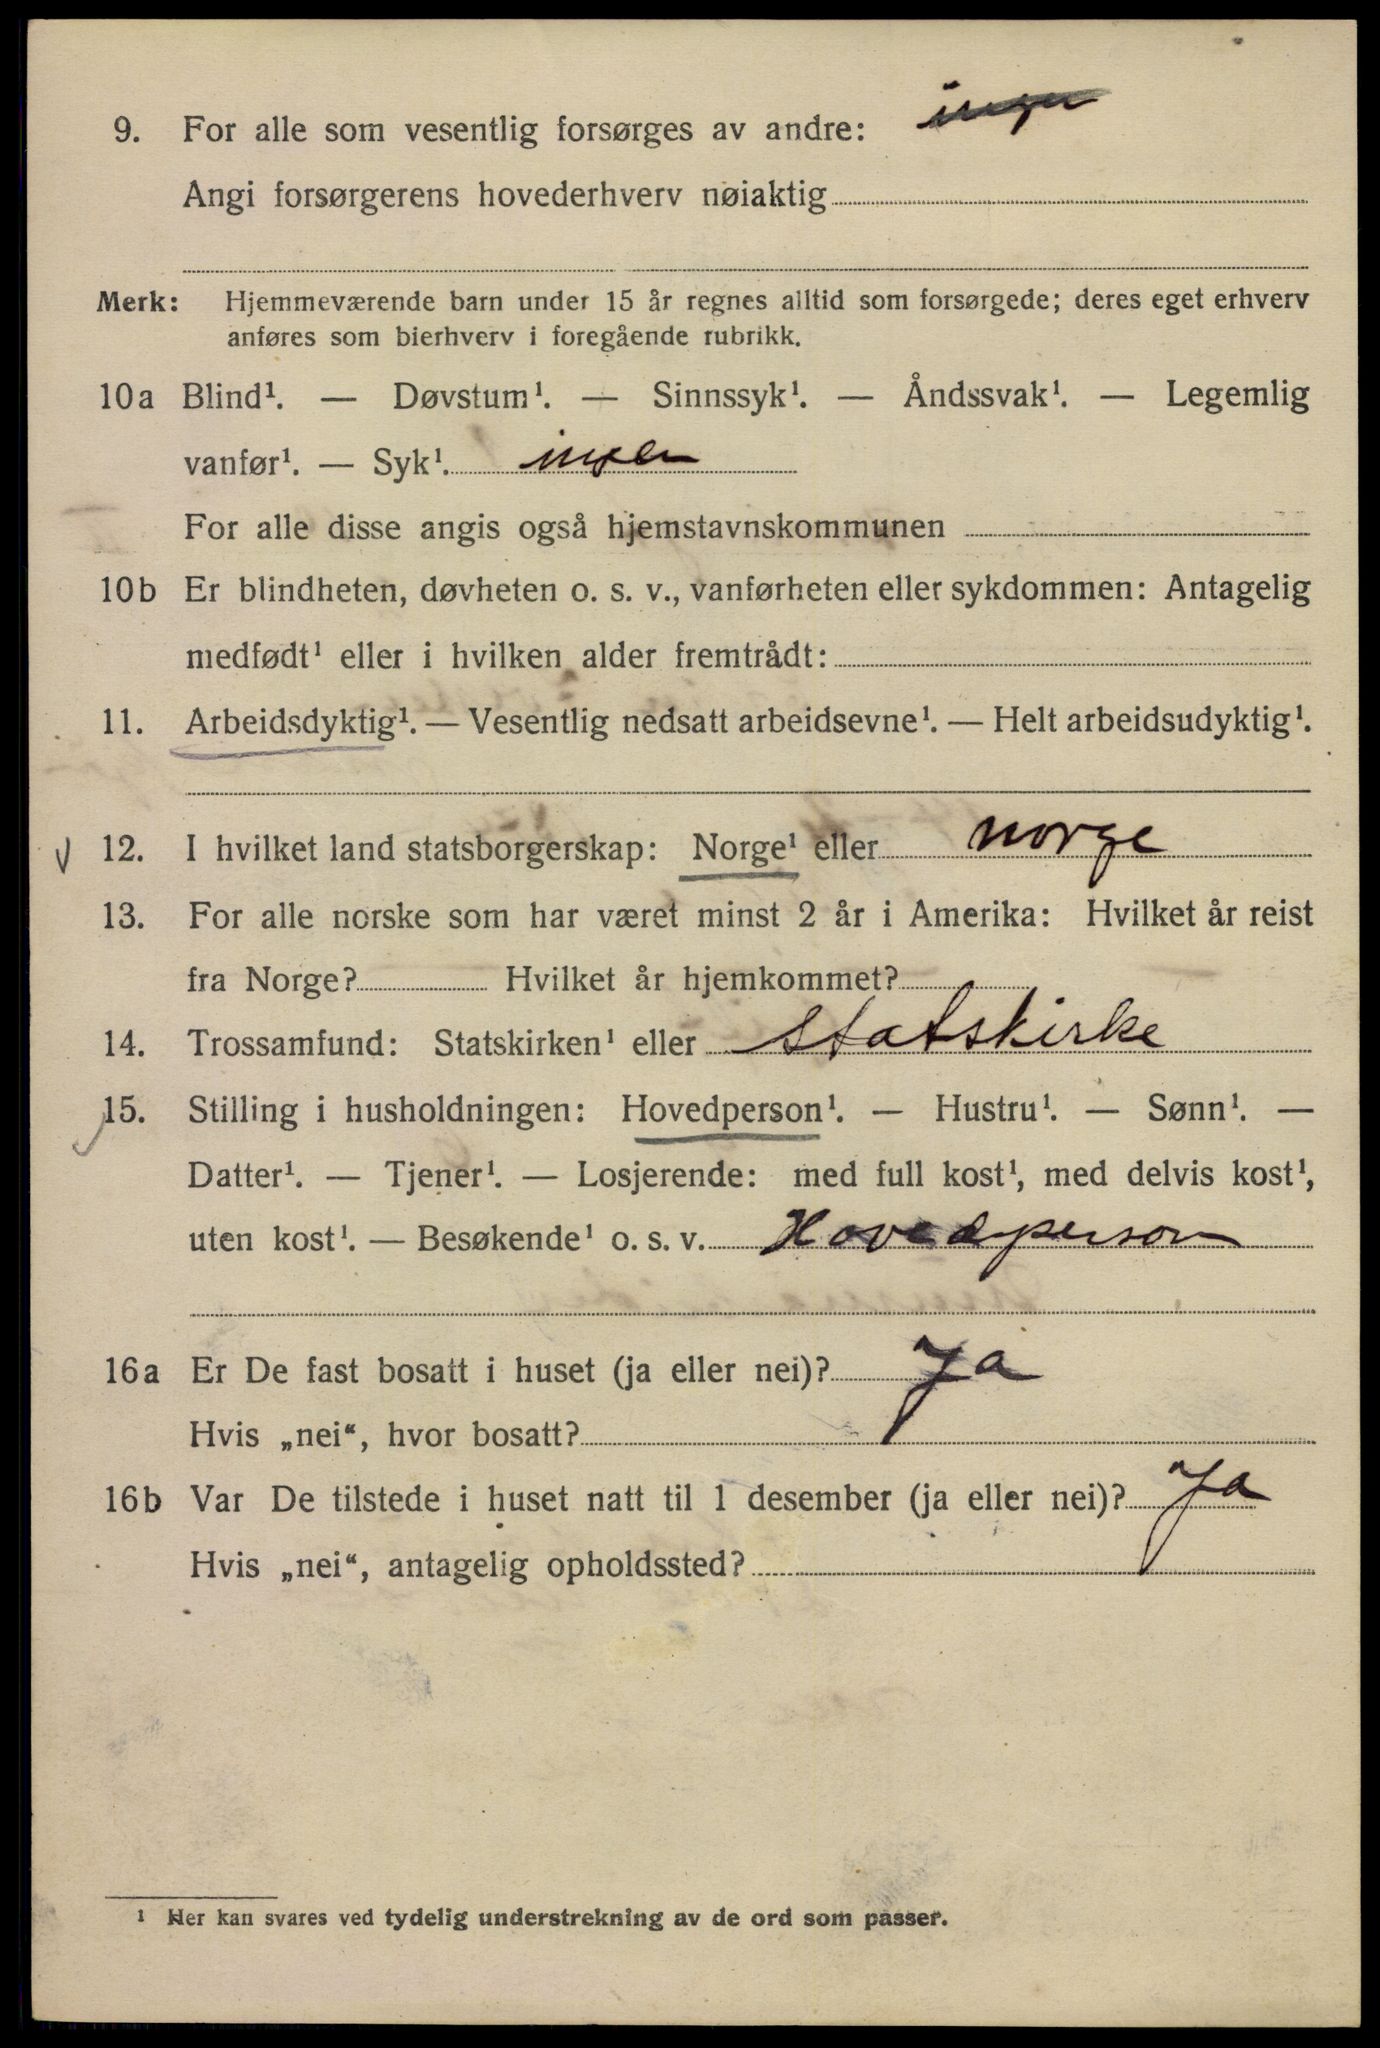 9. For alle som vesentlig forsørges av andre: ingen
Angi forsørgerens hovederhverv nøiaktig
Merk: Hjemmeværende barn under 15 år regnes alltid som forsørgede; deres eget erhverv
anføres som bierhverv i foregående rubrikk.
10a Blind¹. — Døvstum¹. — Sinnssyk¹. — Åndssvak¹. — Legemlig
vanfør¹. — Syk¹. ingen
For alle disse angis også hjemstavnskommunen
10b Er blindheten, døvheten o. s. v., vanførheten eller sykdommen: Antagelig
medfødt¹ eller i hvilken alder fremtrådt:
11. Arbeidsdyktig¹. — Vesentlig nedsatt arbeidsevne¹. — Helt arbeidsudyktig¹.
12. I hvilket land statsborgerskap: Norge¹ eller norge
13. For alle norske som har været minst 2 år i Amerika: Hvilket år reist
fra Norge? Hvilket år hjemkommet?
14. Trossamfund: Statskirken¹ eller statskirke
15. Stilling i husholdningen: Hovedperson¹. — Hustru¹. — Sønn¹. —
Datter¹. — Tjener¹. — Losjerende: med full kost¹, med delvis kost¹,
uten kost¹. — Besøkende¹ o. s. v. Hovedperson
16a Er De fast bosatt i huset (ja eller nei)? Ja
Hvis „nei“, hvor bosatt?
16b Var De tilstede i huset natt til 1 desember (ja eller nei)? Ja
Hvis „nei“, antagelig opholdssted?
¹ Her kan svares ved tydelig understrekning av de ord som passer.